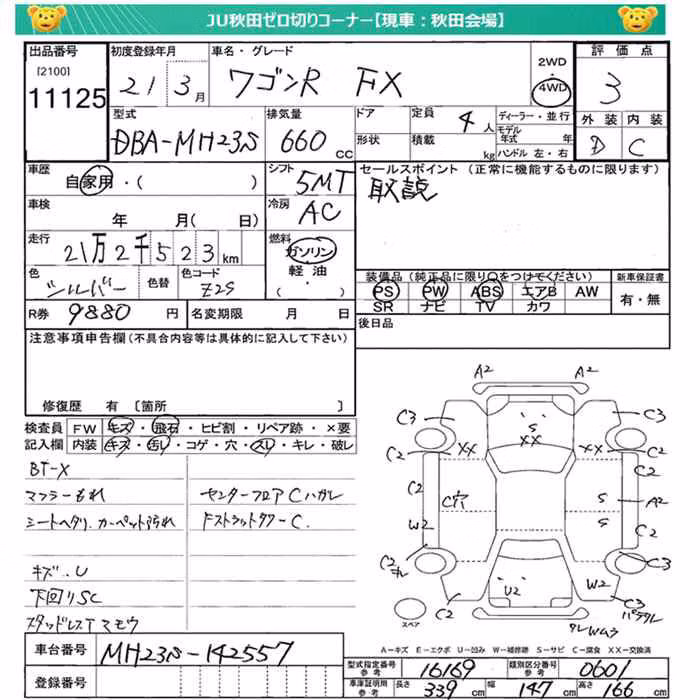 JU秋田ゼロ切りコーナー【現車：秋田会場】
出品番号 初度登録年月 車名・グレード 2WD・4WD 評価点
[2100]
11125 21 3月 ワゴンR FX 3
外装 内装
D C
型式 排気量 ドア 定員 4人 ディーラー・並行
モデル年式 年
DBA-MH23S 660cc 形状 積載 kg ハンドル 左・右
車歴 自家用・( ) シフト 5MT セールスポイント (正常に機能するものに限ります)
取説
車検 年 月( 日) 冷房 AC
走行 21万2千523km 燃料 ガソリン
軽油・( )
色 シルバー 色替 色コード Z2S
装備品(純正品に限り○をつけてください) 新車保証書
PS PW ABS エアB AW 有・無
SR ナビ TV カワ
R券 9880円 名変期限 月 日 後日品
注意事項申告欄(不具合内容等は具体的に記入して下さい)
修復歴 有〔箇所 〕
検査員記入欄 FW キズ・飛石・ヒビ割・リペア跡・×要
内装 キズ・汚レ・コゲ・穴・スレ・キレ・破レ
BT-X
マフラーもれ センターフロアCハガレ
シートヘタリ、カーペット汚れ FストラットタワーC.
キズ、U
下回りSC
スタッドレスTマモウ
A2 A2
C3 C3
S
XX XX XX
C2 C2
C2 C穴 S A2
W2 S C2
C2キレ C3
U2 W2
C2 C3
スペア
A-キズ E-エクボ U-凹み W-補修跡 S-サビ C-腐食 XX-交換済
車台番号 MH23S-142557
登録番号
型式指定番号参考 16169 類別区分番号参考 0601
車庫証明用参考 長さ 339cm 幅 147cm 高さ 166cm